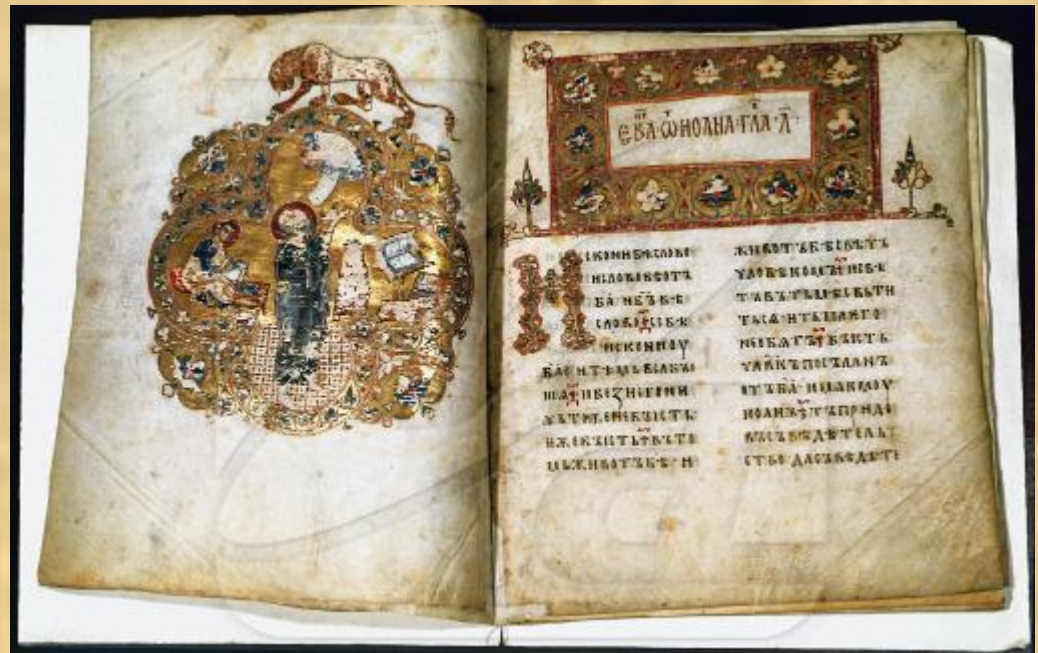 ЄВА·Ѡ·ИОАНА·ГЛА·А҃
ИСКОНИ БѢ СЛОВО
И СЛОВО БѢ ОТЪ
БА҃ И БЪ҃ БѢ
СЛОВО СЕ БѢ
ИСКОНИ ОУ
БА҃ И ТѢМЬ
И БЕЗ НЕГО НИ
ЧЬТОЖЕ НЕ БЫСТЬ
ѤЖЕ БЫСТЬ ВЪ ТО
МЬ ЖИВОТЪ БѢ И
ЖИВОТЪ БѢ СВѢТЪ
ЧЛОВѢКОМЪ И СВѢ
ТЪ ВЪ ТЬМѢ СВЬТИ
ТЬСѦ И ТЬМА ѤГО
НЕ ОБѦТЪ БЫСТЬ
ЧЛ҃КЪ ПОСЪЛАНЪ
ОТЪ БА҃ ИМѦ ѤМОУ
ИОАНЪ ТЪ ПРИДЕ
ВЪ СЪВѢДѢТЕЛЬ
СТВО ДА СЪВѢДѢТЕ